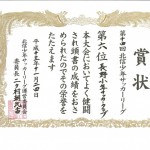 賞状
第十四回 北信少年サッカーリーグ
第六位 長野少年サッカー
本大会においてよく健闘
され頭書の成績をおさ
められたのでその栄誉を
たたえます
平成十五年十一月二四日
北信少年サッカーリーグ
委員長